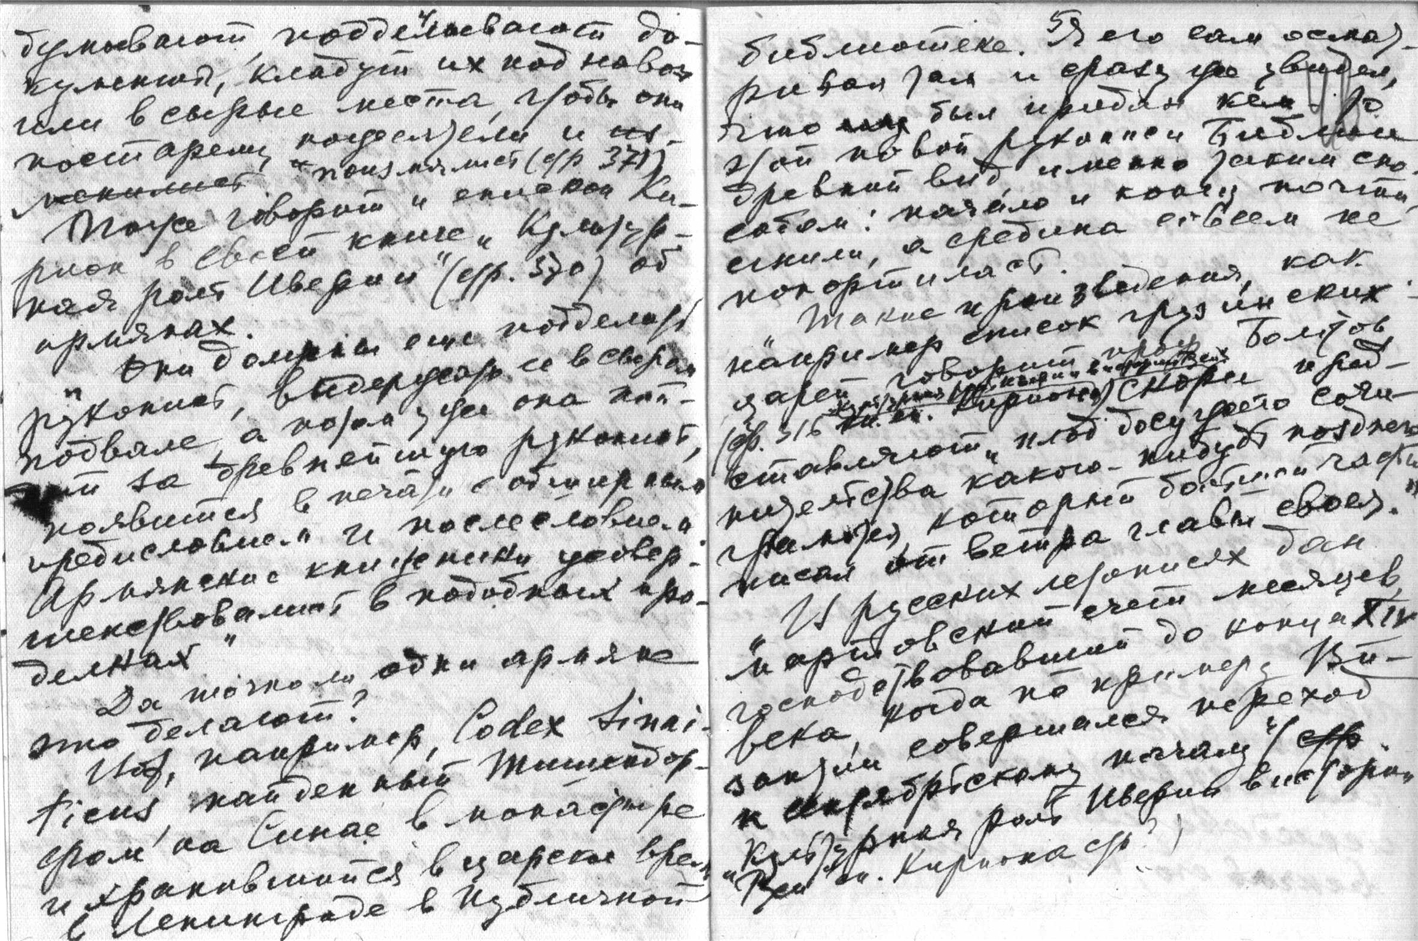 4
думывают, подделывают до-
кументы, кладут их под навоз
или в сырые места, чтобы они
постарели, пожелтели и
"поизмялись (стр 371)
Тоже говорит и епископ Ки-
рион в своей книге „Культур-
ная роль Иверии" (стр. 370) об
армянах.
„Они должны еще подделать
рукопись, выдержать ее в сыром
подвале, а потом уже она
за древнейшую рукопись,
появится в печати с обширным
предисловием и послесловием.
Армянские книжники усовер-
шенствовались в подобных про-
делках"
Да только ли одни армяне
это делают?
Вот, например, Codex Sinai-
ticus, найденный Тишендор-
фом на Синае в монастыре
и хранившийся в царское время
в Ленинграде в Публичной
5
библиотеке. Я его сам осмат-
ривал там и сразу же увидел,
что был придан
этой новой рукописи Библии
древний вид именно таким спо-
собом: начало и конец почти
сгнили, а средина совсем не
попортилась.
Такие произведения, как
например список грузинских
царей, говорит проф. Болотов
(стр. 316 кн. еп. Кириона) скорее пред-
ставляют „плод досужего сочи-
нительства какого-нибудь позднего
грамотея, который большей частью
писал от ветра главы своея."
„В русских летописях дан
мартовский счет месяцев,
господствовавший до конца XIV
века, когда по примеру Ви-
зантии совершался переход
к сентябрьскому началу" (
„Культурная роль Иверии в истории
Руси" еп. Кириона стр ? )